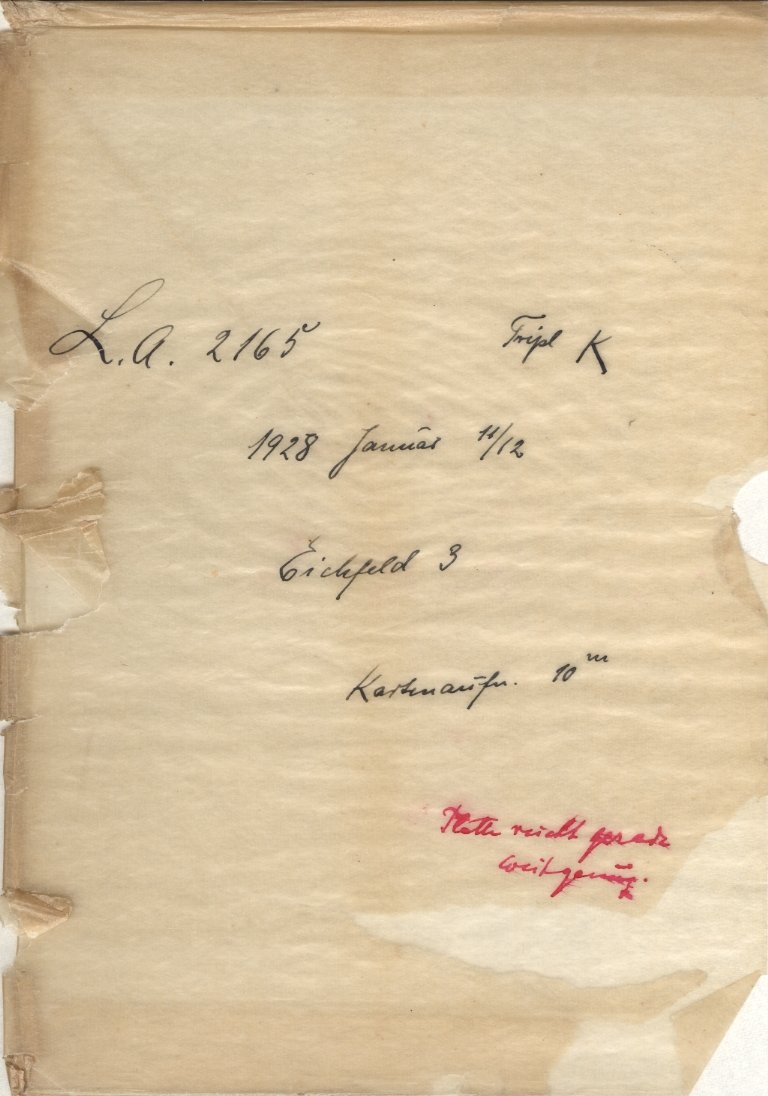 L.A. 2165 Tripl K
1928 Januar 11/12
Eichfeld 3
Kartenaufn. 10 m
Platte reicht gerade
weit genug.